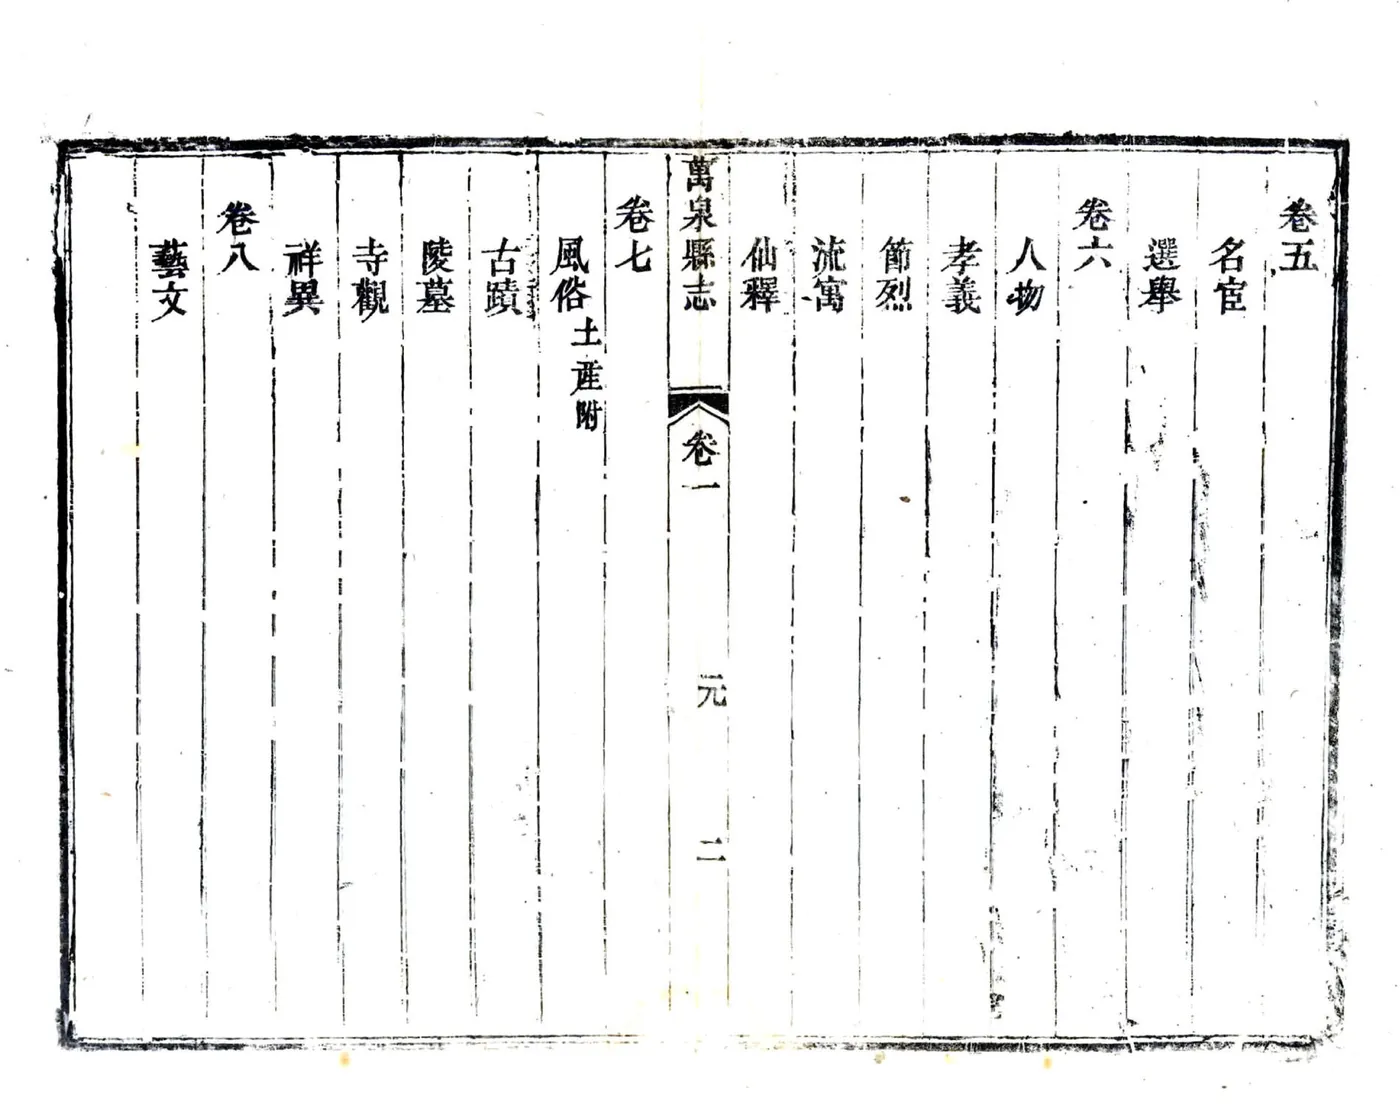 卷五
名宦
選舉
卷六
人物
孝義
節烈
流寓
仙釋
萬泉縣志
卷一
元
二
卷七
風俗土產附
古蹟
陵墓
寺觀
祥異
卷八
藝文